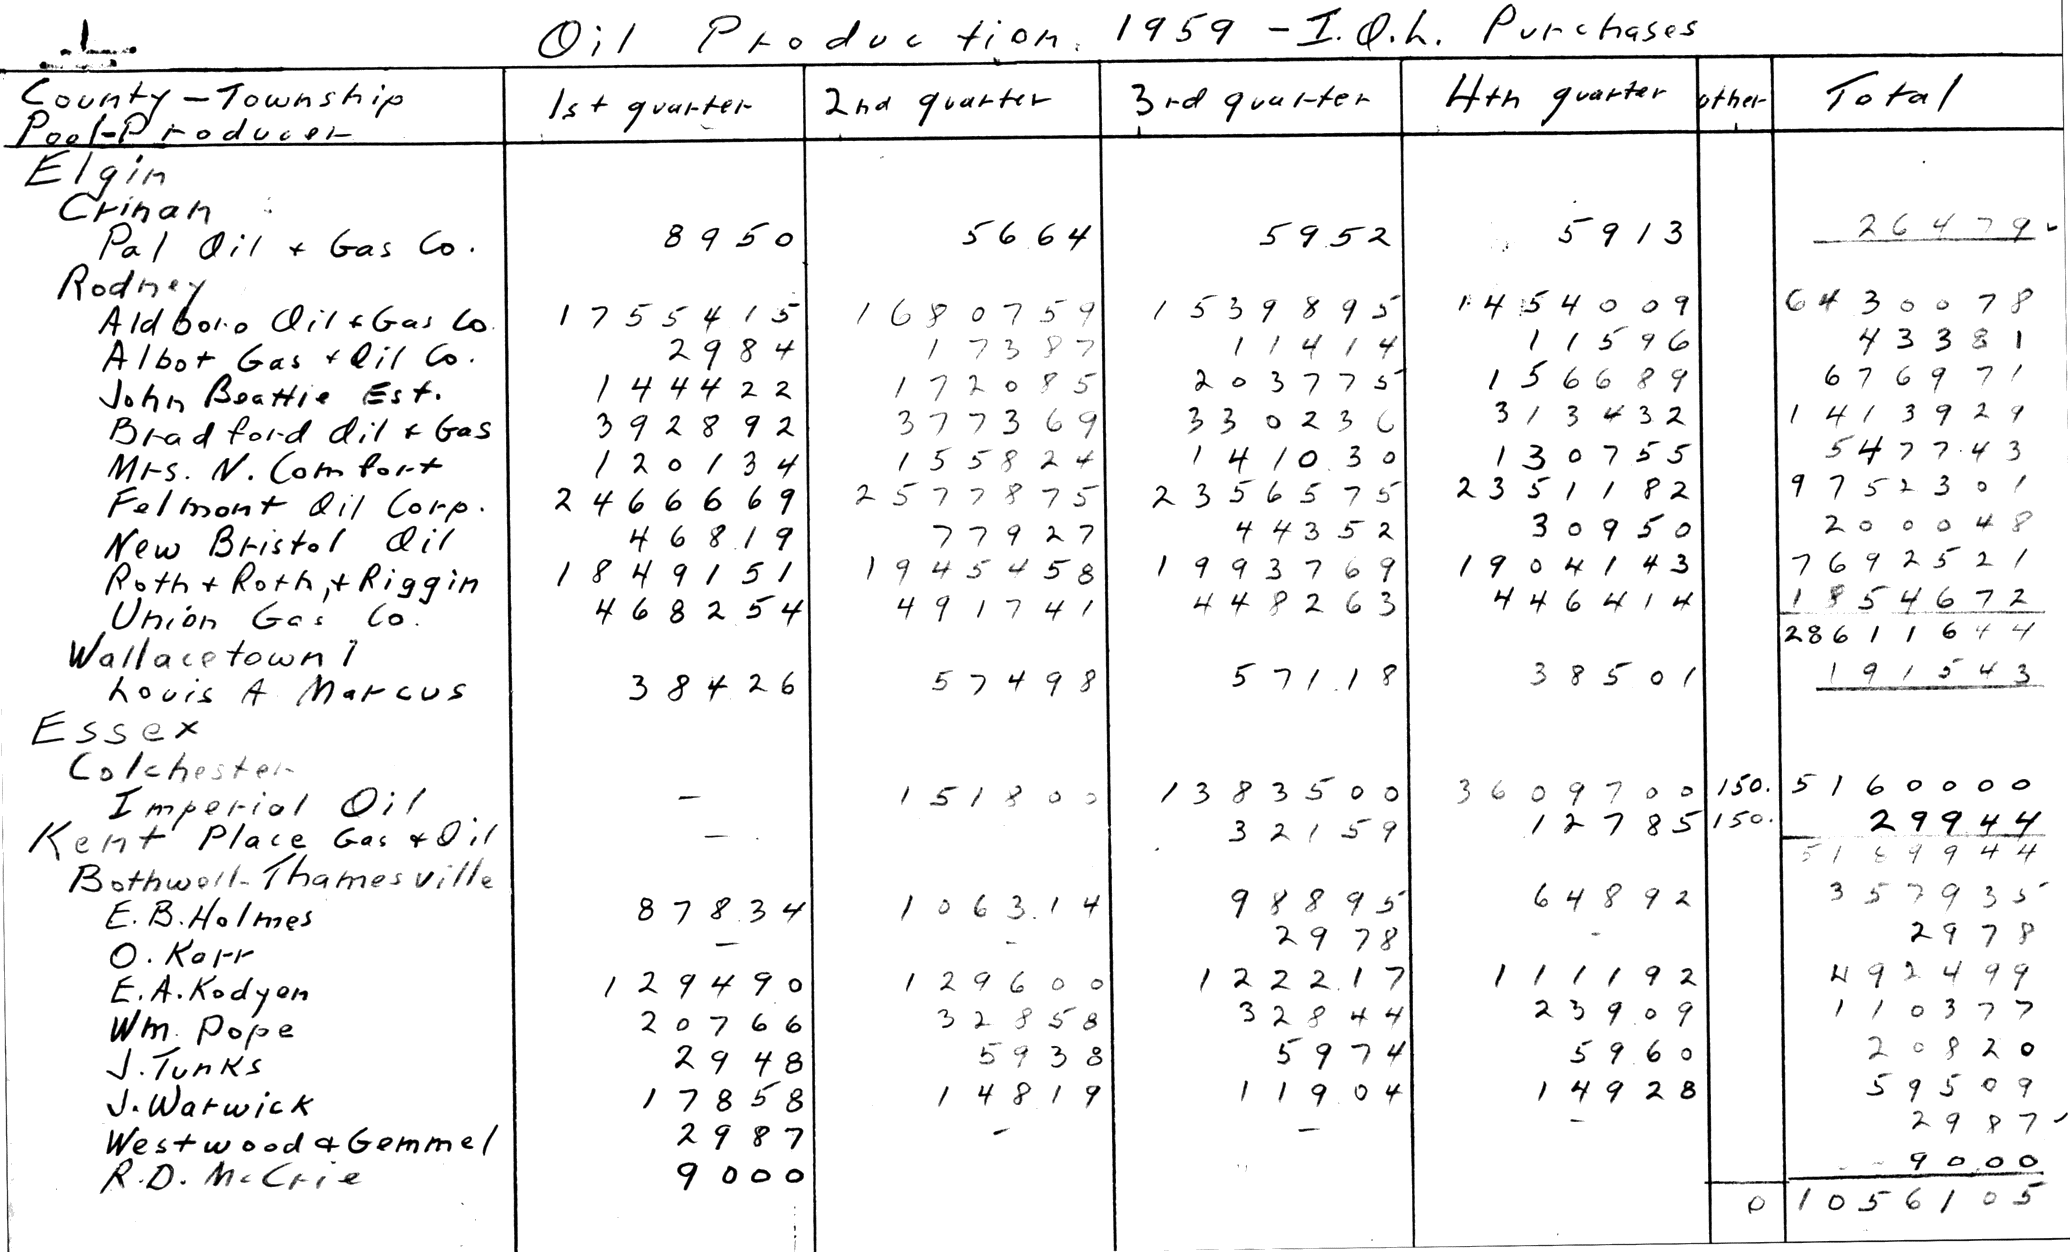 Oil Production 1959 - I.O.L. Purchases
County - Township Pool-Producer 1st quarter 2nd quarter 3rd quarter 4th quarter other Total
Elgin
Crinan
Pal Oil + Gas Co. 8950 5664 5952 5913 26479
Rodney
Aldboro Oil + Gas Co. 1755415 1680759 1539895 1454009 6430078
Albot Gas + Oil Co. 2984 17387 11414 11596 43381
John Beattie Est. 144422 172085 203775 156689 676971
Bradford Oil + Gas 392892 377369 330236 313432 1413929
Mrs. N. Comfort 120134 155824 141030 130755 547743
Felmont Oil Corp. 2466669 2577875 2356575 2351182 9752301
New Bristol Oil 46819 77927 44352 30950 200048
Roth + Roth, + Riggin 1849151 1945458 1993769 1904143 7692521
Union Gas Co. 468254 491741 448263 446414 1854672
28611644
Wallacetown
Louis A Marcus 38426 57498 57118 38501 191543
Essex
Colchester
Imperial Oil - 151800 1383500 3609700 150. 5160000
Kent Place Gas + Oil - 32159 12785 150. 29944
5189944
Bothwell-Thamesville
E.B. Holmes 87834 106314 98895 64892 357935
O. Karr - - 2978 - 2978
E.A. Kodyen 129490 129600 122217 111192 492499
Wm. Pope 20766 32858 32844 23909 110377
J. Tunks 2948 5938 5974 5960 20820
J. Warwick 17858 14819 11904 14928 59509
Westwood & Gemmel 2987 - - - 2987
R.D. McCrie 9000 9000
0 1056105